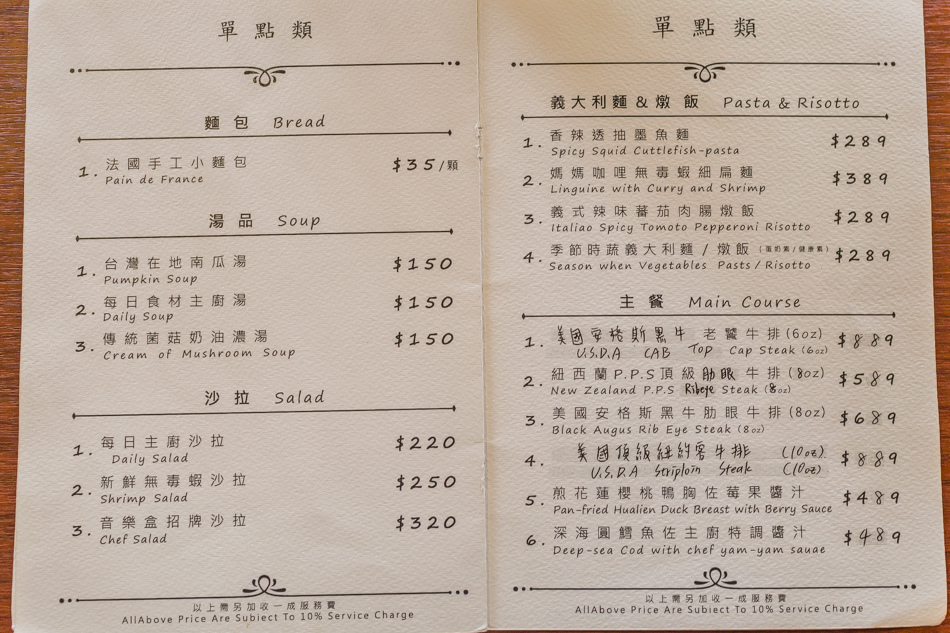 單點類
麵包 Bread
1. 法國手工小麵包 $35/顆
Pain de France
湯品 Soup
1. 台灣在地南瓜湯 $150
Pumpkin Soup
2. 每日食材主廚湯 $150
Daily Soup
3. 傳統菌菇奶油濃湯 $150
Cream of Mushroom Soup
沙拉 Salad
1. 每日主廚沙拉 $220
Daily Salad
2. 新鮮無毒蝦沙拉 $250
Shrimp Salad
3. 音樂盒招牌沙拉 $320
Chef Salad
以上需另加收一成服務費
AllAbove Price Are Subiect To 10% Service Charge
單點類
義大利麵&燉飯 Pasta & Risotto
1. 香辣透抽墨魚麵 $289
Spicy Squid Cuttlefish-pasta
2. 媽媽咖哩無毒蝦細扁麵 $389
Linguine with Curry and Shrimp
3. 義式辣味蕃茄肉腸燉飯 $289
Italiao Spicy Tomoto Pepperoni Risotto
4. 季節時蔬義大利麵/燉飯(蛋奶素/健康素) $289
Season when Vegetables Pasts/Risotto
主餐 Main Course
1. 美國安格斯黑牛 老饕牛排(6oz) $889
U.S.D.A CAB Top Cap Steak (6oz)
2. 紐西蘭P.P.S頂級肋眼牛排(8oz) $589
New Zealand P.P.S Ribeye Steak (8oz)
3. 美國安格斯黑牛肋眼牛排(8oz) $689
Black Augus Rib Eye Steak (8oz)
4. 美國頂級紐約客牛排 (10oz) $889
U.S.D.A Striploin Steak (10oz)
5. 煎花蓮櫻桃鴨胸佐莓果醬汁 $489
Pan-fried Hualien Duck Breast with Berry Sauce
6. 深海圓鱈魚佐主廚特調醬汁 $489
Deep-sea Cod with chef yam-yam sauae
以上需另加收一成服務費
AllAbove Price Are Subiect To 10% Service Charge